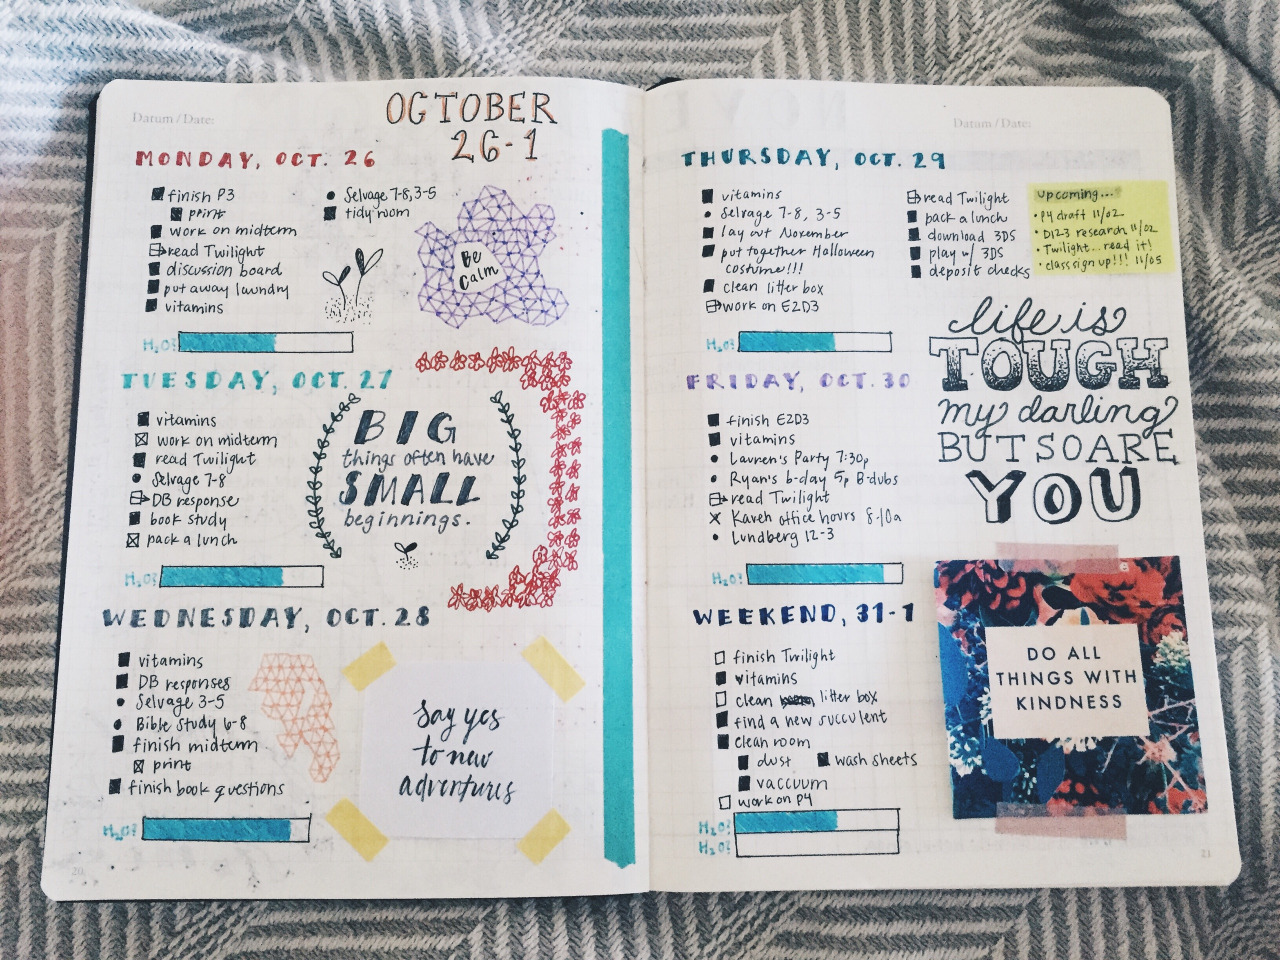 Datum / Date:
OCTOBER
26-1
MONDAY, OCT. 26
finish P3
print
work on midterm
read Twilight
discussion board
put away laundry
vitamins
Selvage 7-8, 3-5
tidy room
Be
Calm
H2O?
TUESDAY, OCT. 27
vitamins
work on midterm
read Twilight
Selvage 7-8
DB response
book study
pack a lunch
BIG
things often have
SMALL
beginnings.
H2O?
WEDNESDAY, OCT. 28
vitamins
DB responses
Selvage 3-5
Bible Study 6-8
finish midterm
print
finish book questions
Say yes
to new
adventures
H2O?
20
Datum / Date:
THURSDAY, OCT. 29
vitamins
Selvage 7-8, 3-5
lay out November
put together Halloween
costume!!!
clean litter box
work on E2D3
read Twilight
pack a lunch
download 3DS
play w/ 3DS
deposit checks
upcoming...
P4 draft 11/02
D123 research 11/02
Twilight... read it!
class sign up!!! 11/05
H2O?
life is
TOUGH
my darling
BUT SO ARE
YOU
FRIDAY, OCT. 30
finish E2D3
vitamins
Lauren's Party 7:30p
Ryan's b-day 5p B-dubs
read Twilight
Karen office hours 8-10a
Lundberg 12-3
H2O?
WEEKEND, 31-1
finish Twilight
vitamins
clean litter box
find a new succulent
clean room
dust
wash sheets
vaccuum
work on P4
H2O?
H2O?
DO ALL
THINGS WITH
KINDNESS
21